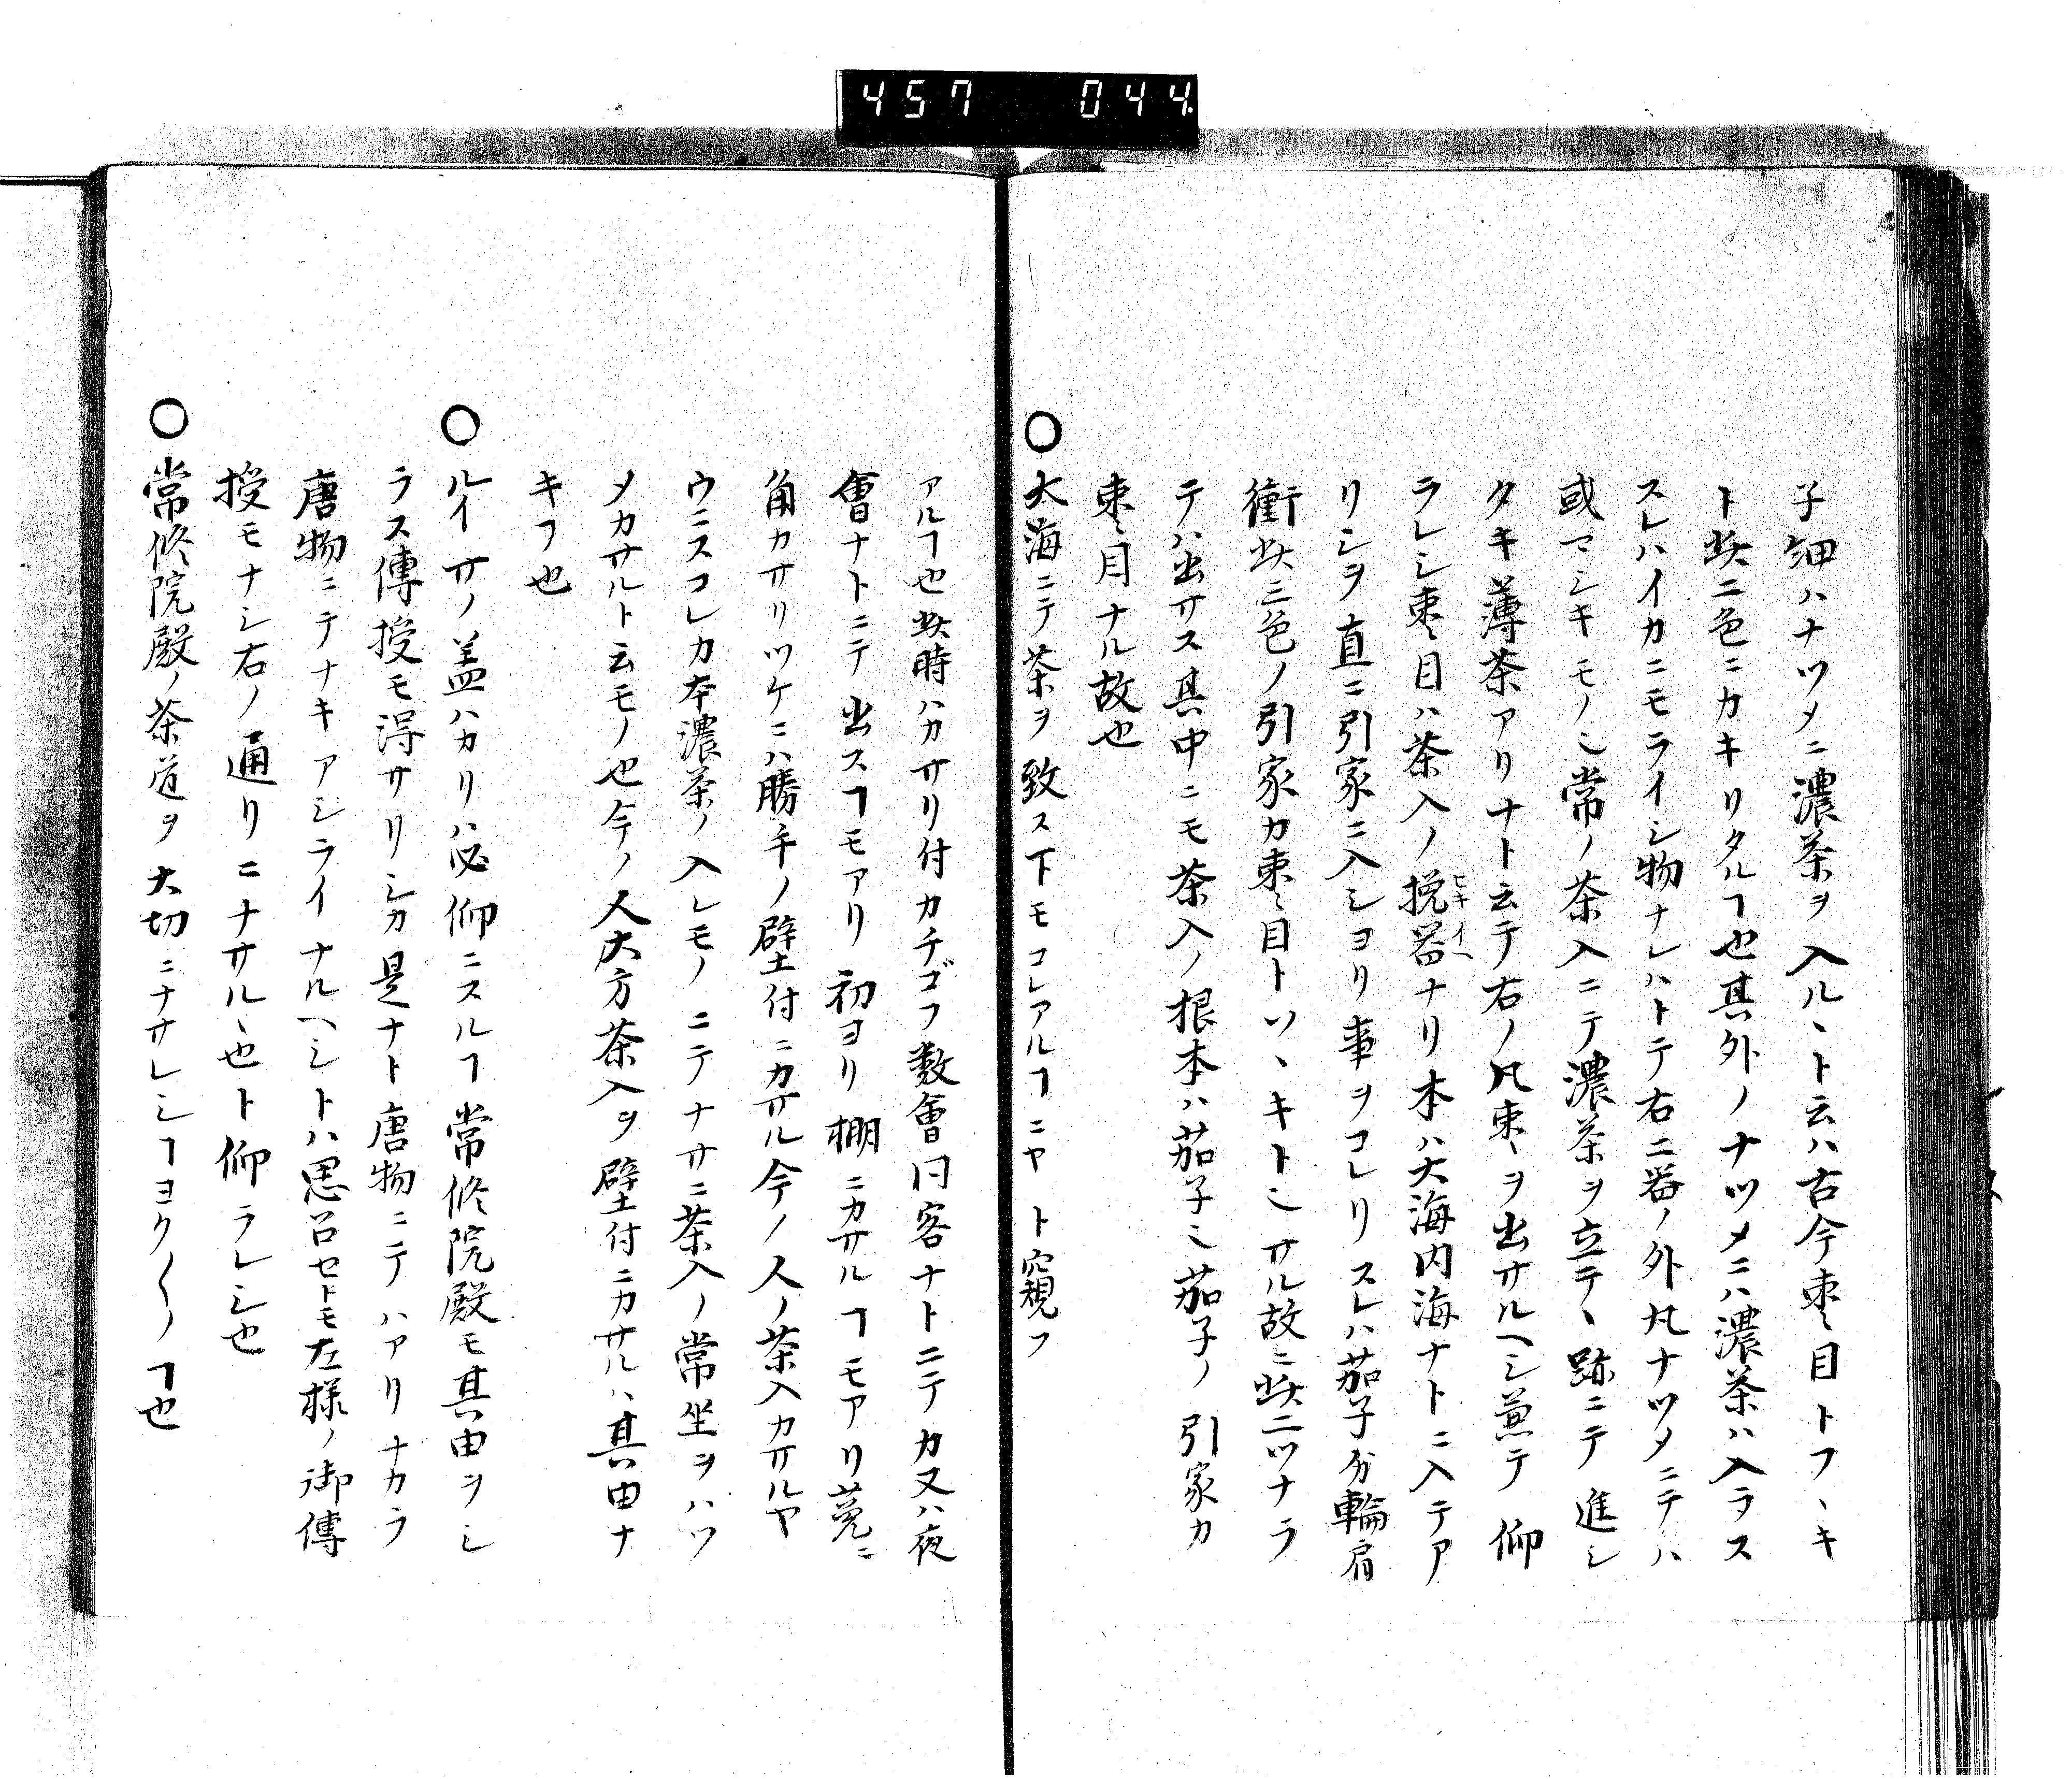 457 044
子細ハナツメニ濃茶ヲ入ルヽト云ハ古今棗ニ目トフヽキ
ト此二色ニカキリタルヿ也其外ノナツメニハ濃茶ハ入ラス
スレハイカニモライシ物ナレハトテ右二器ノ外凡ナツメニテハ
或マシキモノ也常ノ茶入ニテ濃茶ヲ立テヽ跡ニテ進シ
タキ薄茶アリナト云テ右ノ凡棗ヲ出サルヘシ兼テ仰
ラレシ棗ニ目ハ茶入ノ挽器ナリ本ハ大海内海ナトニ入テア
ヒキイヘ
リシヲ直ニ引家ニ入シヨリ事ヲコレリスレハ茄子分輪肩
衝此三色ノ引家カ棗ニ目トツヽキト也サル故ニ此二ツナラ
テハ出サス其中ニモ茶入ノ根本ハ茄子也茄子ノ引家カ
棗ニ目ナル故也
〇大海ニテ茶ヲ致ス下モコレアルヿニヤト窺フ
アルヿ也此時ハカサリ付カチゴフ数會同客ナトニテカ又ハ夜
會ナトニテ出スヿモアリ初ヨリ棚ニカサルヿモアリ莵ニ
角カサリツケニハ勝手ノ壁付ニカサル今ノ人ノ茶入カサルヤ
ウニスコレカ本濃茶ノ入レモノニテナサニ茶入ノ常坐ヲハツ
メカサルト云モノ也今ノ人大方茶入ヲ壁付ニカサルハ其由ナ
キヿ也
〇ルイサノ盖ハカリハ必仰ニスルヿ常修院殿モ其由ヲシ
ラス傳授モ得サリシカ是ナト唐物ニテハアリナカラ
唐物ニテナキアシライナルヘシトハ思召セトモ左様ノ御傳
授モナシ右ノ通リニナサルヽ也ト仰ラレシ也
〇常修院殿ノ茶道ヲ大切ニナサレシヿヨク〳〵ノヿ也